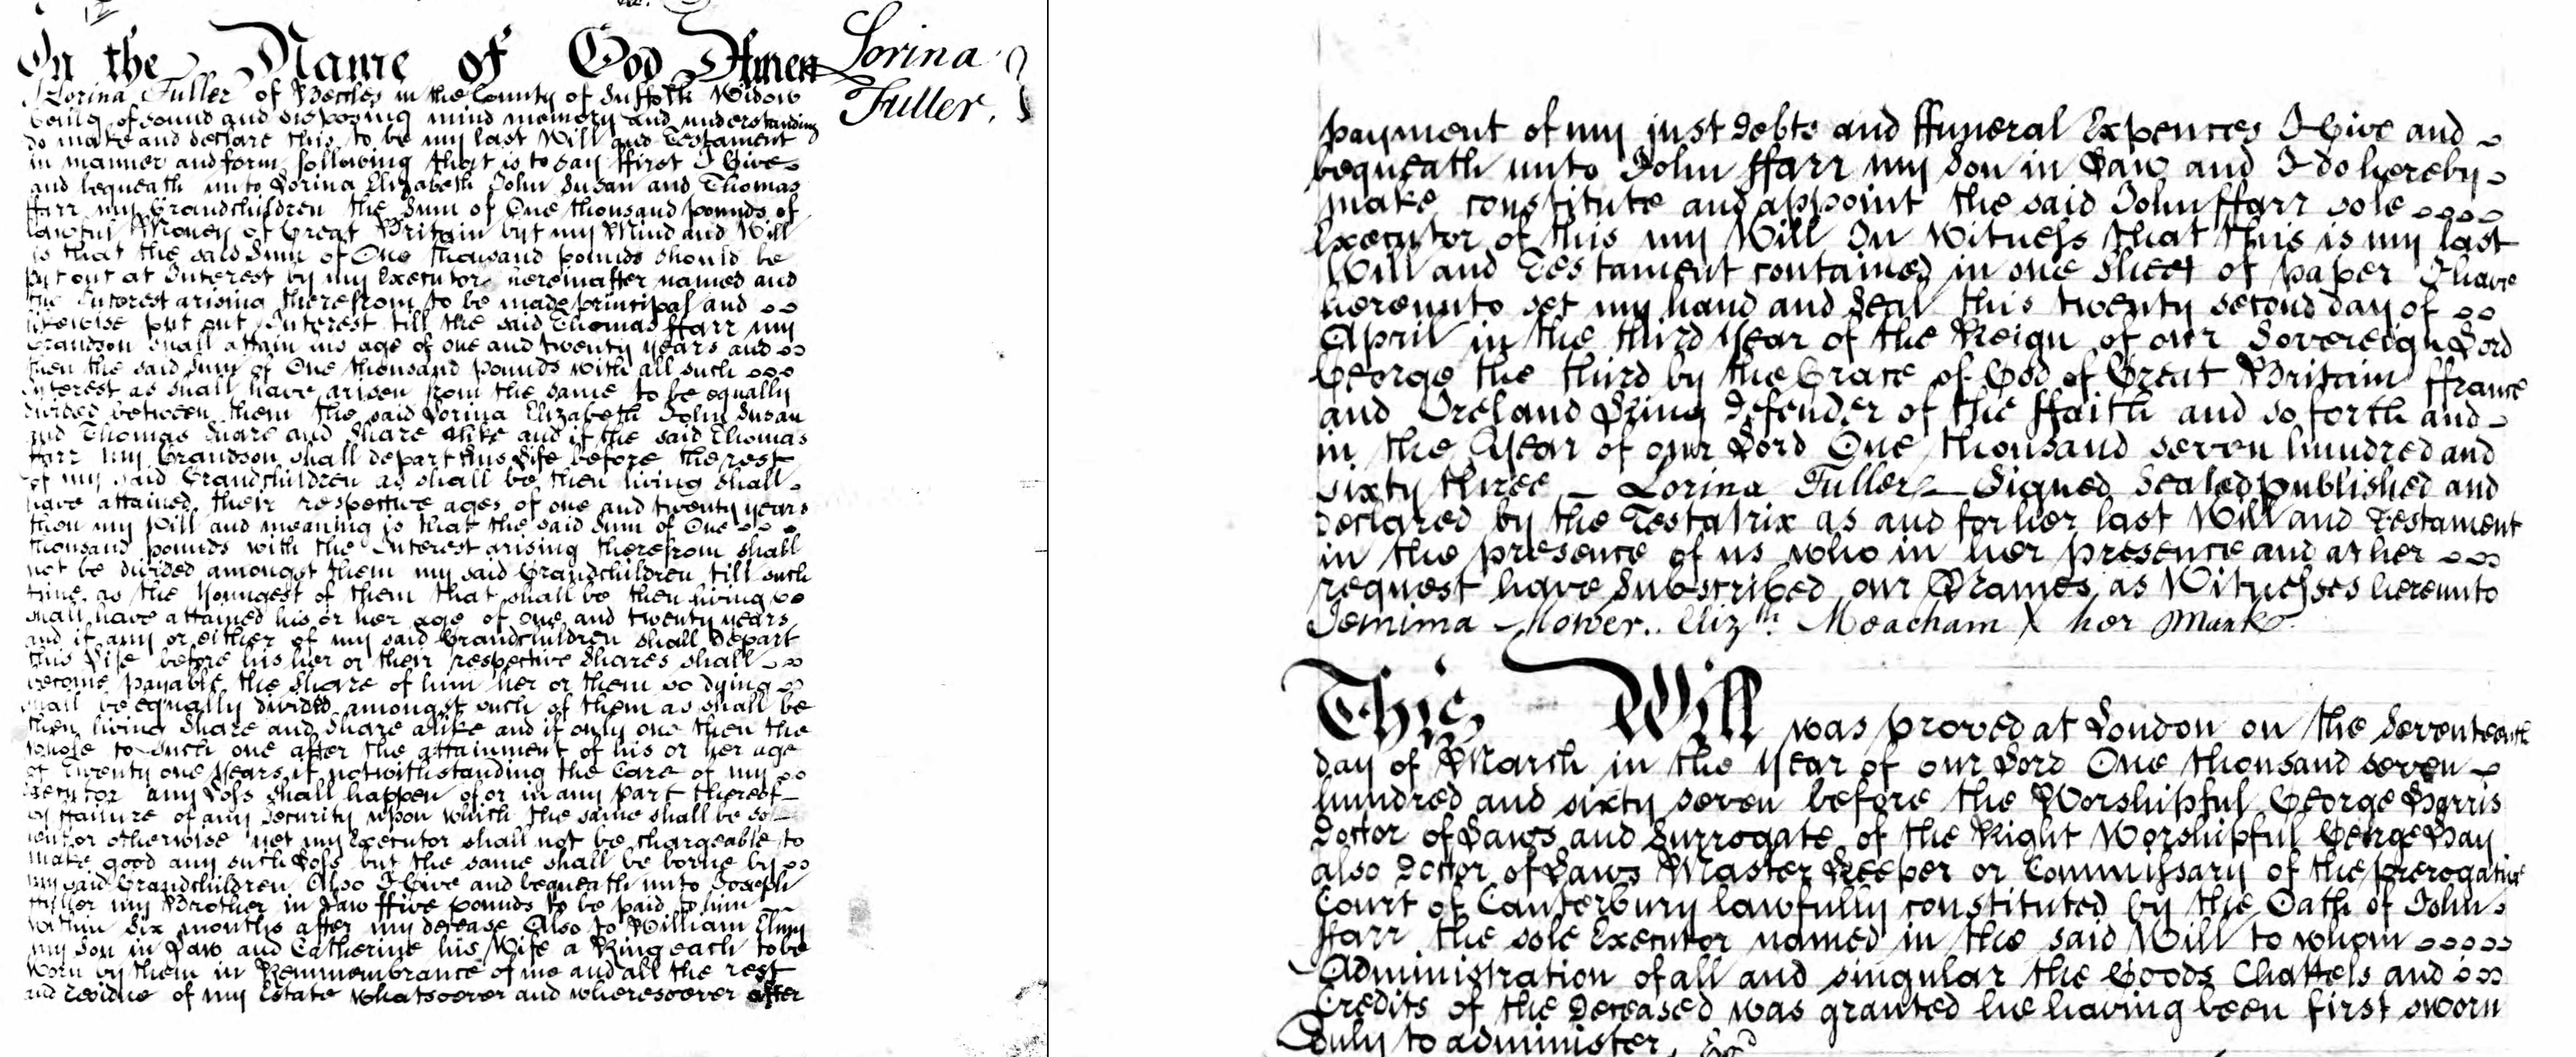 In the Name of God Amen
Lorina Fuller.
I Lorina Fuller of Beccles in the County of Suffolk Widow
being of sound and disposing mind memory and understanding
do make and declare this to be my last Will and Testament
in manner and form following that is to say ffirst I Give
and bequeath unto Lorina Elizabeth John Susan and Thomas
ffarr my Grandchildren the Sum of One thousand pounds of
lawful Money of Great Britain but my Mind and Will
is that the said Sum of One thousand pounds should be
put out at Interest by my Executor hereinafter named and
the Interest arising therefrom to be made principal and
likewise put out Interest till the said Thomas ffarr my
Grandson shall attain his age of one and twenty years and
then the said Sum of One thousand pounds with all such
Interest as shall have arisen from the same to be equally
divided between them the said Lorina Elizabeth John Susan
and Thomas Share and Share alike and if the said Thomas
ffarr my Grandson shall depart this Life before the rest
of my said Grandchildren as shall be then living shall
have attained their respective ages of one and twenty years
then my Will and meaning is that the said Sum of One
thousand pounds with the Interest arising therefrom shall
not be divided amongst them my said Grandchildren till such
time as the Youngest of them that shall be then living
shall have attained his or her age of one and twenty years
and if any or either of my said Grandchildren shall depart
this Life before his her or their respective Shares shall
become payable the Share of him her or them so dying
shall be equally divided amongst such of them as shall be
then living Share and Share alike and if only one then the
whole to such one after the attainment of his or her age
of Twenty one Years if notwithstanding the Care of my
Executor any Loss shall happen of or in any part thereof
by ffailure of any Security upon which the same shall be so
lent or otherwise yet my Executor shall not be chargeable to
make good any such Loss but the same shall be borne by
my said Grandchildren Also I Give and bequeath unto Joseph
my Brother in Law ffive pounds to be paid to him
within Six months after my decease Also to William
my Son in Law and Catherine his Wife a Ring each to be
worn by them in Remmembrance of me and all the rest
and residue of my Estate whatsoever and wheresoever after
payment of my just Debts and ffuneral Expences I Give and
bequeath unto John ffarr my Son in Law and I do hereby
make constitute and appoint the said John ffarr sole
Executor of this my Will In Witness that this is my last
Will and Testament contained in one Sheet of paper I have
hereunto set my hand and Seal this twenty second day of
April in the third Year of the Reign of our Sovereign Lord
George the third by the Grace of God of Great Britain ffrance
and Ireland King Defender of the ffaith and so forth and
in the Year of our Lord One thousand seven hundred and
sixty three – Lorina Fuller – Signed Sealed published and
declared by the Testatrix as and for her last Will and Testament
in the presence of us who in her presence and at her
request have Subscribed our Names as Witnesses hereunto
Jemima Mower. Elizth. Meacham X her Mark
This Will was proved at London on the Seventeenth
day of March in the Year of our Lord One thousand seven
hundred and sixty seven before the Worshipful George Harris
Doctor of Laws and Surrogate of the Right Worshipful George Hay
also Doctor of Laws Master Keeper or Commissary of the prerogative
Court of Canterbury lawfully constituted by the Oath of John
ffarr the sole Executor named in the said Will to whom
Administration of all and singular the Goods Chattels and
Credits of the Deceased was granted he having been first sworn
Duly to administer